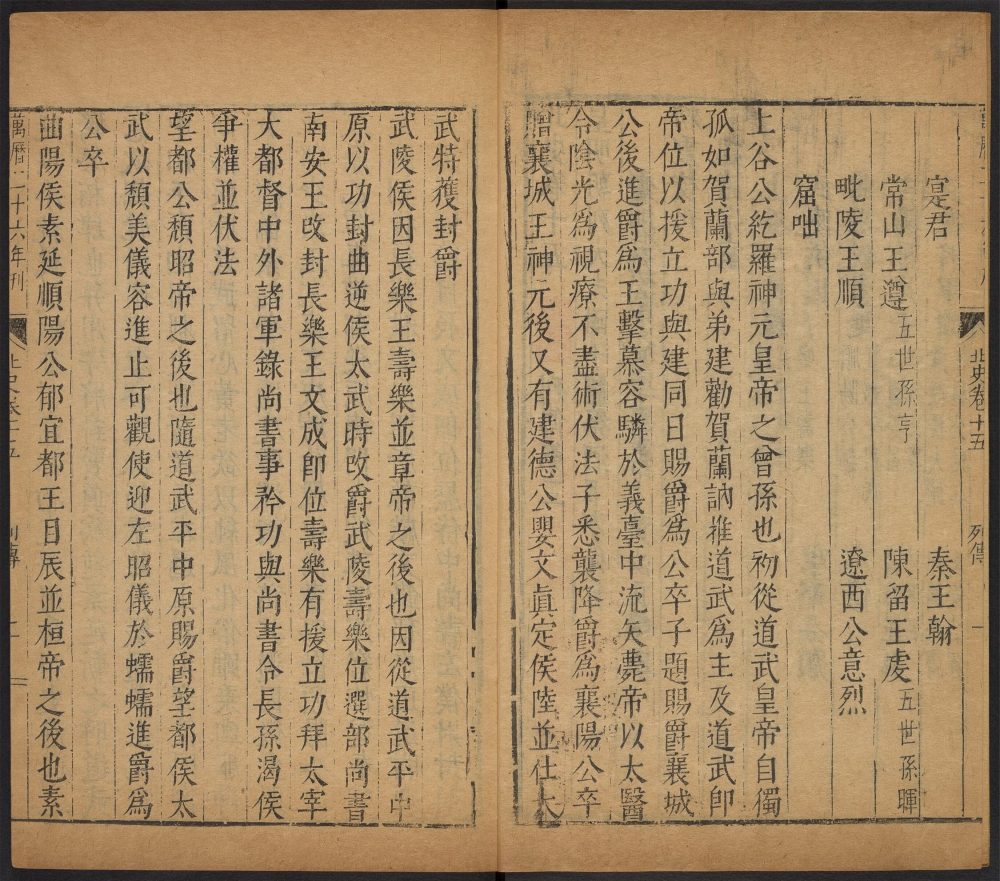 北史卷十五
列傳
一
寔君
秦王翰
常山王遵 五世孫亨
陳留王虔 五世孫暉
毗陵王順
遼西公意烈
窟咄
上谷公紇羅神元皇帝之曾孫也初從道武皇帝自獨
孤如賀蘭部與弟建勸賀蘭訥推道武爲主及道武即
帝位以援立功與建同日賜爵爲公卒子題賜爵襄城
公後進爵爲王擊慕容驎於義臺中流矢薨帝以太醫
令陰光爲視療不盡術伏法子悉襲降爵爲襄陽公卒
贈襄城王神元後又有建德公嬰文眞定侯陸並仕太
武特獲封爵
武陵侯因長樂王壽樂並章帝之後也因從道武平中
原以功封曲逆侯太武時改爵武陵壽樂位選部尚書
南安王改封長樂王文成卽位壽樂有援立功拜太宰
大都督中外諸軍錄尚書事矜功與尚書令長孫渴侯
爭權並伏法
望都公頹昭帝之後也隨道武平中原賜爵望都侯太
武以頹美儀容進止可觀使迎左昭儀於蠕蠕進爵爲
公卒
曲陽侯素延順陽公郁宜都王目辰並桓帝之後也素
萬曆二十六年刊
北史卷十五
列傳
二